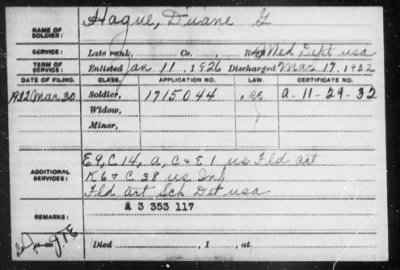 NAME OF SOLDIER: Hague, Duane G
SERVICE: Late rank, Co. Reg't Med Dept usa
TERM OF SERVICE: Enlisted Jan 11, 1926 Discharged Mar. 17, 1932
DATE OF FILING. CLASS. APPLICATION NO. LAW. CERTIFICATE NO.
1932 Mar. 30 Soldier, 1715044 a-11-29-32
Widow,
Minor,
ADDITIONAL SERVICES: E9, C14, a, C & E 1 us Fld art
K 67 C 38 us Inf
Fld art Sch Det usa
A 3 353 117
REMARKS:
Died , 1 , at